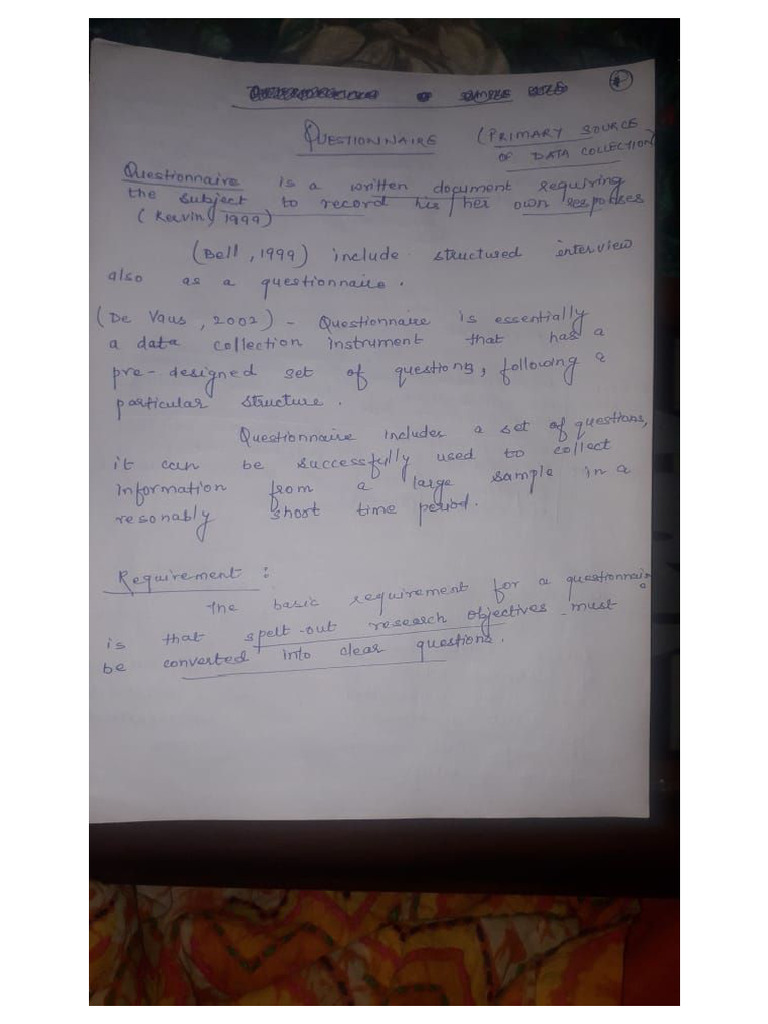 OF SAMPLE SIZE
QUESTIONNAIRE (PRIMARY SOURCE
OF DATA COLLECTION)
Questionnaire is a written document requiring
the subject to record his/her own responses
( Kervin, 1999)
(Bell, 1999) include structured interview
also as a questionnaire.
(De Vaus, 2002) - Questionnaire is essentially
a data collection instrument that has a
pre-designed set of questions, following a
particular structure.
Questionnaire includes a set of questions,
it can be successfully used to collect
information from a large sample in a
resonably short time period.
Requirement :
The basic requirement for a questionnaire
is that spelt-out research objectives must
be converted into clear questions.